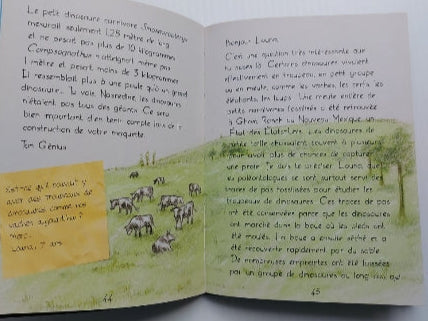 Le petit dinosaure carnivore
mesurait seulement 1,25 mètre de long
et ne pesait pas plus de 10 kilogrammes
Compsognathus n'atteignait même pas
1 mètre et pesait moins de 3 kilogrammes
Il ressemblait plus à une poule qu'à un grand
dinosaure... Tu vois, Nasredine, les dinosaures
n'étaient pas tous des géants. Ce sera
bien important d'en tenir compte lors de la
construction de votre maquette.
Ton Génius
Est-ce qu'il pouvait y
avoir des troupeaux de
dinosaures comme nos
vaches aujourd'hui ?
Merci.
Launa, 7 ans
44
Bonjour Launa,
C'est une question très intéressante que
tu poses là. Certains dinosaures vivaient
effectivement en troupeau, en petit groupe
ou en meute, comme les vaches, les cerfs, les
éléphants, les loups. Une meute entière de
petits carnivores fossilisés a été retrouvée
à Ghost Ranch au Nouveau Mexique, un
État des États-Unis. Les dinosaures de
petite taille chassaient souvent à plusieurs
pour avoir plus de chances de capturer
une proie. Je dois te préciser, Launa, que
les paléontologues se sont surtout servi des
traces de pas fossilisées pour étudier les
troupeaux de dinosaures. Ces traces de pas
ont été conservées parce que les dinosaures
ont marché dans la boue où les pieds ont
été moulés. La boue a ensuite séché et a
été recouverte rapidement par du sable.
De nombreuses empreintes ont été laissées
par un groupe de dinosaures au long cou qui
45